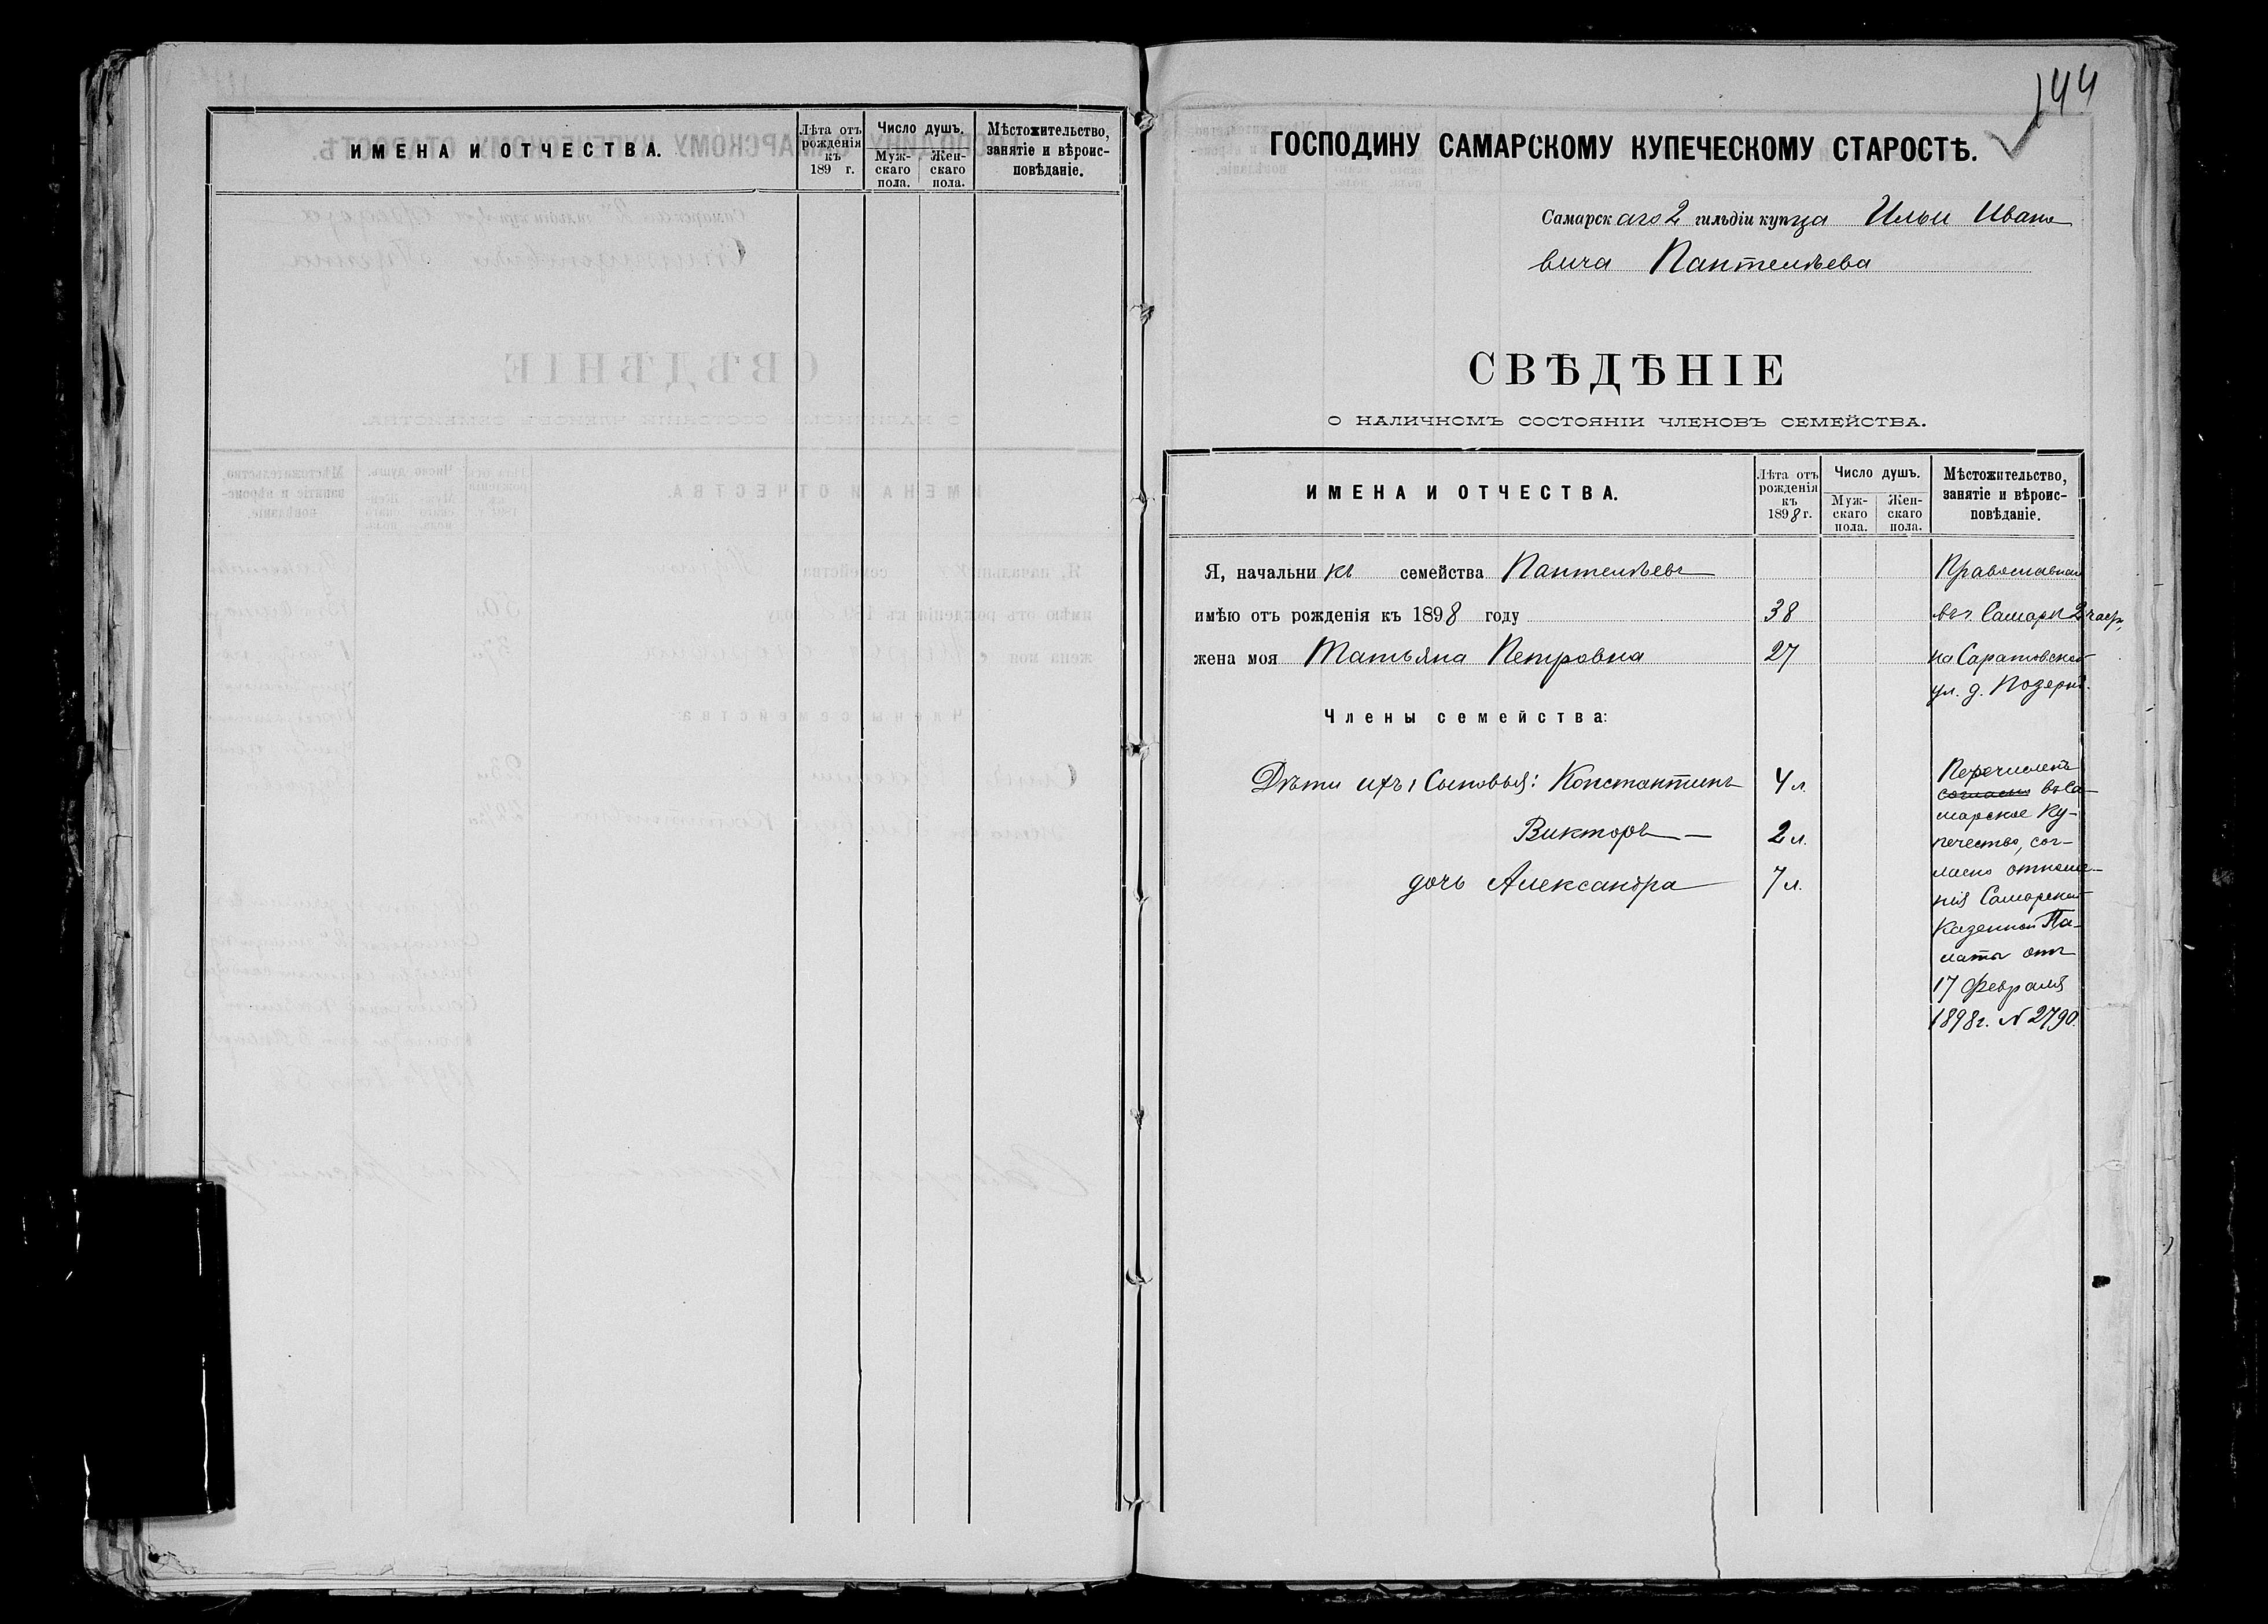 ИМЕНА И ОТЧЕСТВА.
Лѣта отъ
рожденія
къ
189 г.
Число душъ.
Муж-
скаго
пола.
Жен-
скаго
пола.
Мѣстожительство,
занятіе и вѣроис-
повѣданіе.
144
ГОСПОДИНУ САМАРСКОМУ КУПЕЧЕСКОМУ СТАРОСТѢ.
Самарскаго 2 гильдіи купца Ильи Ивано
вича Пантелѣева
СВѢДѢНІЕ
О НАЛИЧНОМЪ СОСТОЯНІИ ЧЛЕНОВЪ СЕМЕЙСТВА.
ИМЕНА И ОТЧЕСТВА.
Лѣта отъ
рожденія
къ
1898 г.
Число душъ.
Муж-
скаго
пола.
Жен-
скаго
пола.
Мѣстожительство,
занятіе и вѣроис-
повѣданіе.
Я, начальникъ семейства Пантелѣевъ
имѣю отъ рожденія къ 1898 году 38
жена моя Татьяна Петровна 27
Православная
въ г. Самарѣ 2 част,
на Саратовской
ул. д.
Члены семейства:
Дѣти ихъ: Сыновья: Константинъ 4 л.
Викторъ — 2 л.
дочь Александра 7 л.
Перечисленъ
согласно въ Са-
марское Ку-
печество, сог-
ласно отноше-
нія Самарской
Казенной Па-
латы отъ
17 Февраля
1898 г. № 2790.